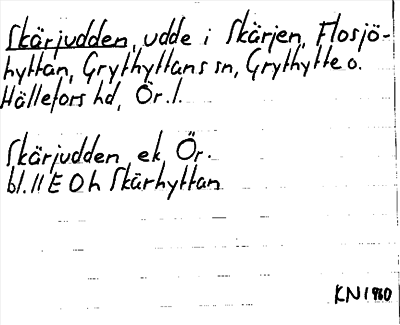 Skärjudden, udde i Skärjen, Flosjö-
hyttan, Grythyttans sn, Grythytte o.
Hällefors hd, Ör. l.
Skärjudden ek, Ör.
bl. 11 E 0 h Skärhyttan
KN 1960